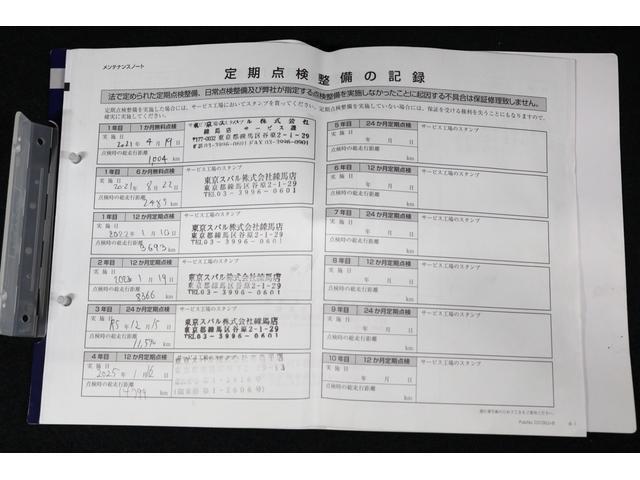 メンテナンスノート
定期点検整備の記録
法で定められた定期点検整備、日常点検整備及び弊社が指定する点検整備を実施しなかったことに起因する不具合は保証修理致しません。
定期点検整備を実施した場合には、サービス工場においてスタンプを貰ってください。定期点検整備を実施していない場合には、保証を受ける権利を失うことにもなりますので、
確実に実施してください。
1年目 1か月無料点検
実施日
2021年 4月 19日
点検時の総走行距離
1,004 km
東京スバル株式会社
練馬店 サービス課
〒177-0032 東京都練馬区谷原2-1-29
1年目 6か月無料点検 サービス工場のスタンプ
実施日
2021年 8月 22日
点検時の総走行距離
2485 km
東京スバル株式会社練馬店
東京都練馬区谷原2-1-29
TEL03-3996-0601
1年目 12か月定期点検 サービス工場のスタンプ
実施日
2022年 1月 10日
点検時の総走行距離
3,693 km
東京スバル株式会社練馬店
東京都練馬区谷原2-1-29
TEL03-3996-0601
2年目 12か月定期点検 サービス工場のスタンプ
実施日
年 1月 19日
点検時の総走行距離
8366 km
東京スバル株式会社練馬店
東京都練馬区谷原2-1-29
TEL03-3996-0601
3年目 24か月定期点検 サービス工場のスタンプ
実施日
R5年 12月 15日
点検時の総走行距離
km
東京スバル株式会社練馬店
東京都練馬区谷原2-1-29
TEL03-3996-0601
4年目 12か月定期点検
実施日
2025年 1月
点検時の総走行距離
km
5年目 24か月定期点検 サービス工場のスタンプ
実施日
年 月 日
点検時の総走行距離
km
6年目 12か月定期点検 サービス工場のスタンプ
実施日
年 月 日
点検時の総走行距離
km
7年目 24か月定期点検 サービス工場のスタンプ
実施日
年 月 日
点検時の総走行距離
km
8年目 12か月定期点検 サービス工場のスタンプ
実施日
年 月 日
点検時の総走行距離
km
9年目 24か月定期点検 サービス工場のスタンプ
実施日
年 月 日
点検時の総走行距離
km
10年目 12か月定期点検 サービス工場のスタンプ
実施日
年 月 日
点検時の総走行距離
km